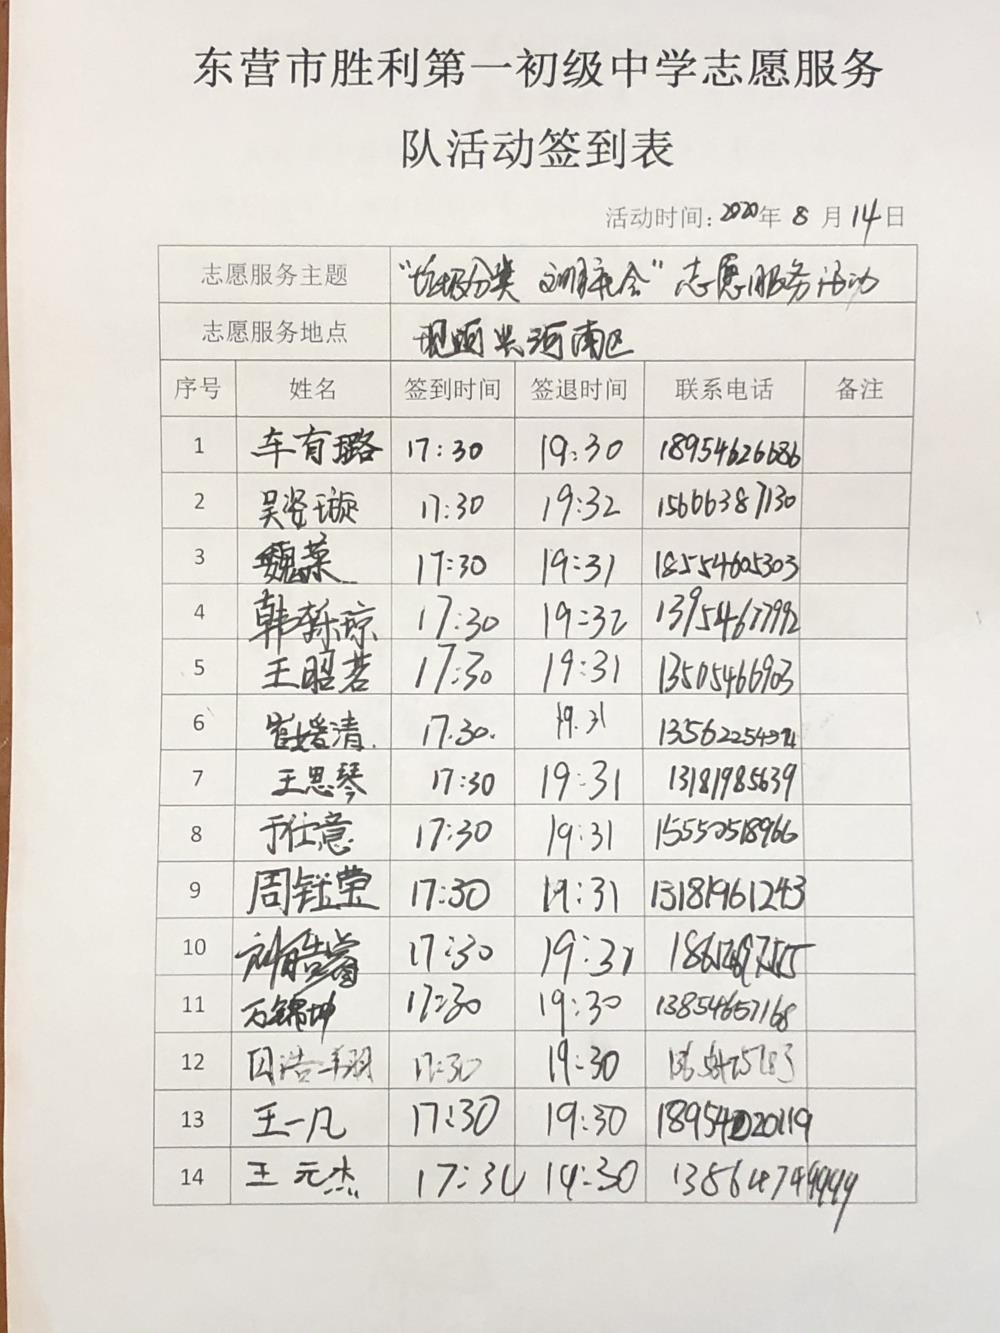 东营市胜利第一初级中学志愿服务
队活动签到表
活动时间：2020年 8 月 14 日
志愿服务主题 “垃圾分类 文明”志愿服务活动
志愿服务地点 河南区
序号 姓名 签到时间 签退时间 联系电话 备注
1 车有璐 17:30 19:30 18954626686
2 吴姿璇 17:30 19:32 15606387130
3 魏菜 17:30 19:31 18554605303
4 韩琼 17:30 19:32 13954677992
5 王昭茗 17:30 19:31 13505466903
6 崔媛清 17.30. 19.31
7 王思琴 17:30 19:31 13181985639
8 于仕意 17:30 19:31 15550518966
9 周钰莹 17:30 19:31 13181961243
10 刘皓睿 17:30 19:31
11 万锦坤 17:30 19:30 13854657168
12 17:30 19:30
13 王一凡 17:30 19:30
14 王元杰 17:30 19:30